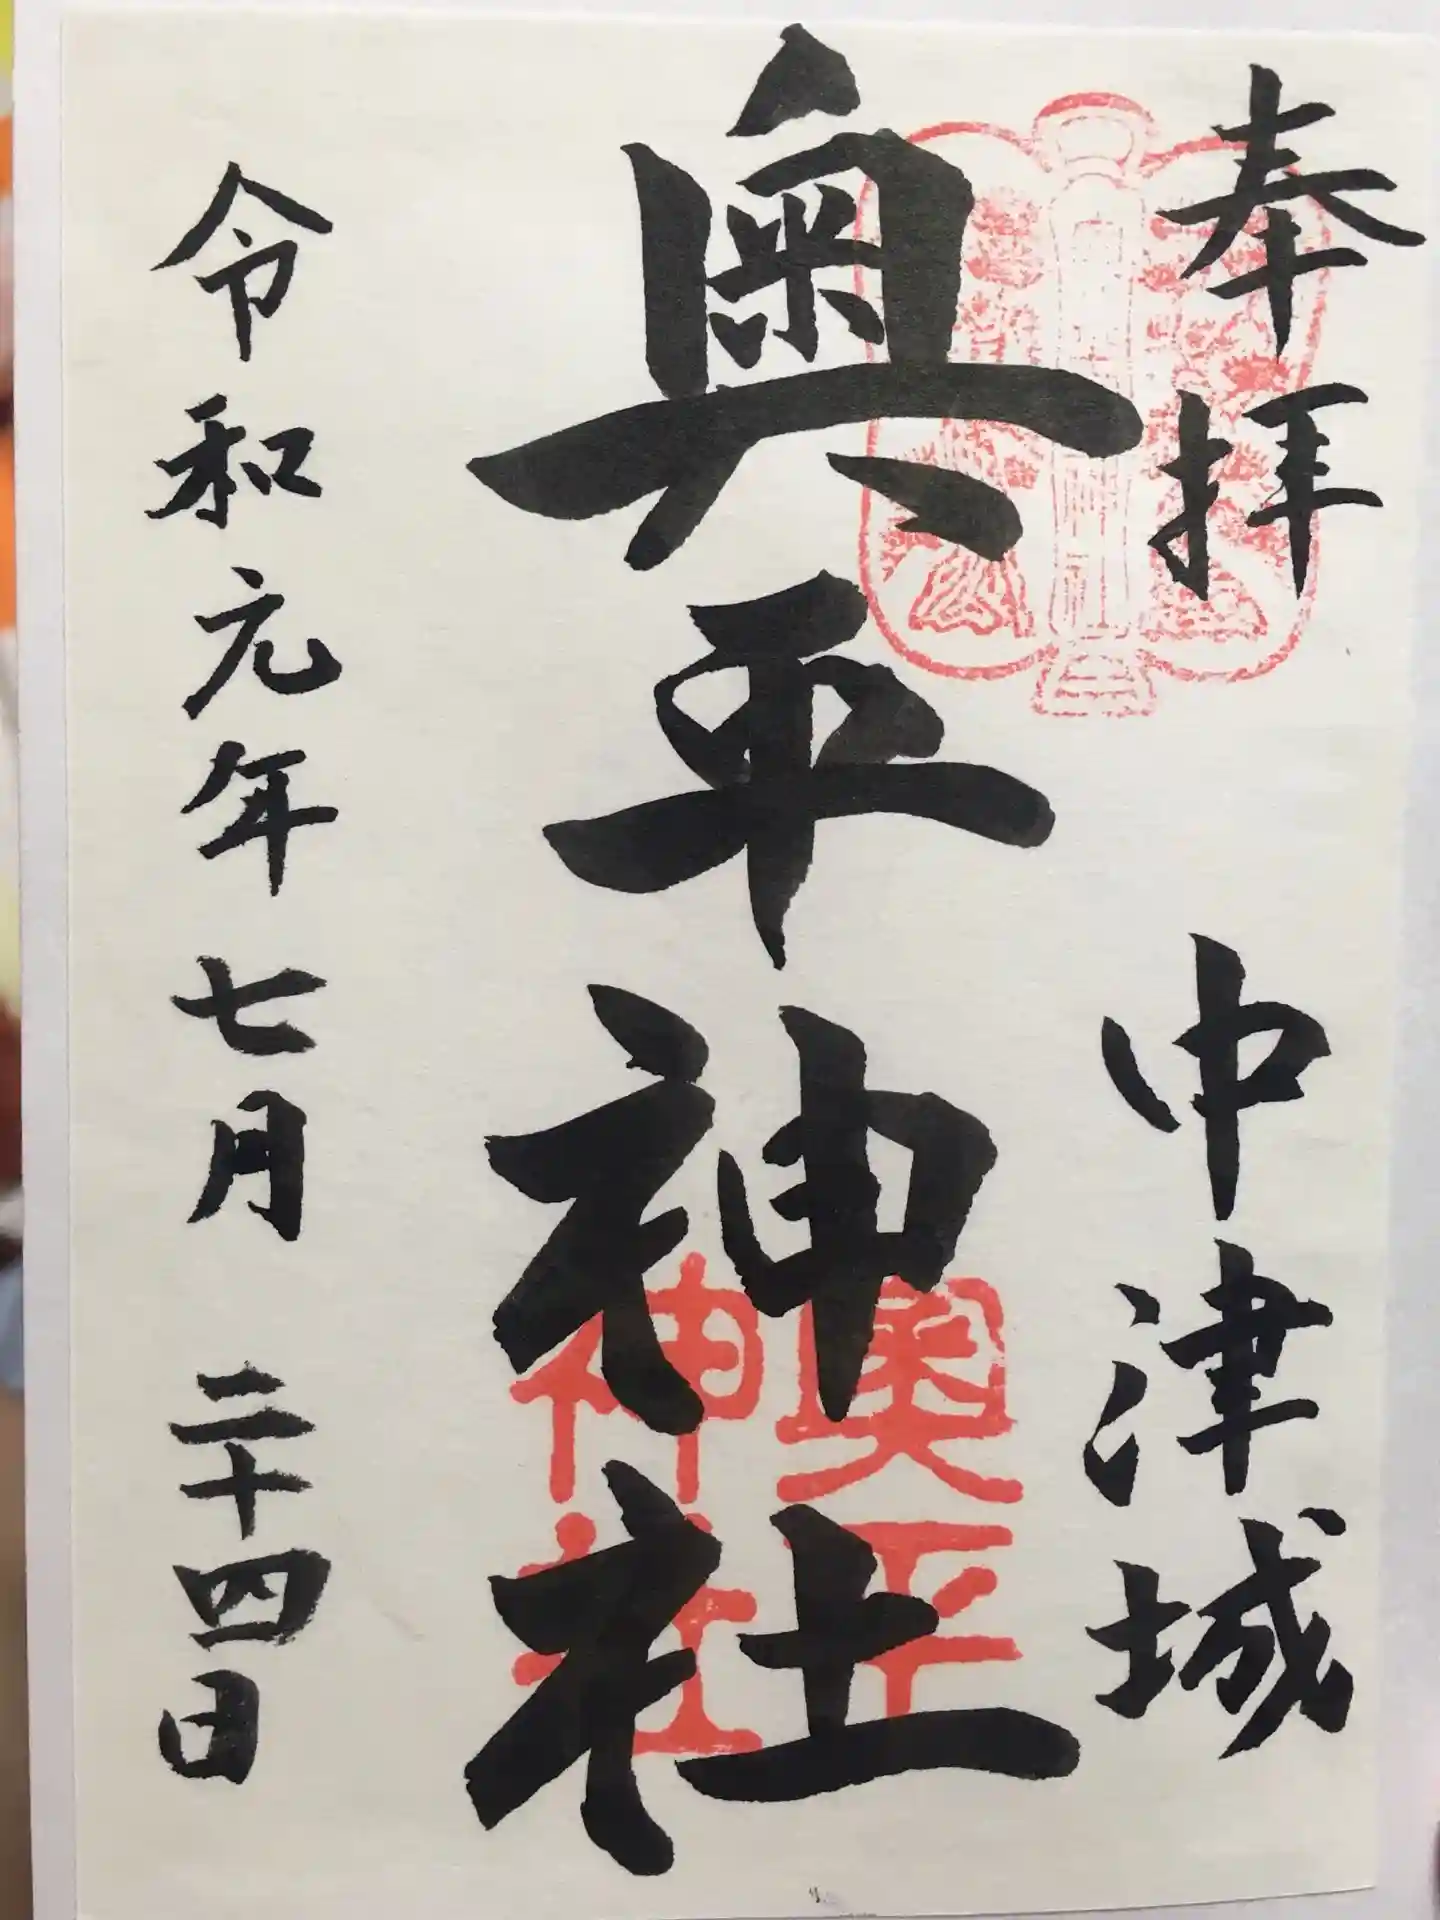 奉拝 中津城
奥平神社
奥平
神社
令和元年七月二十四日